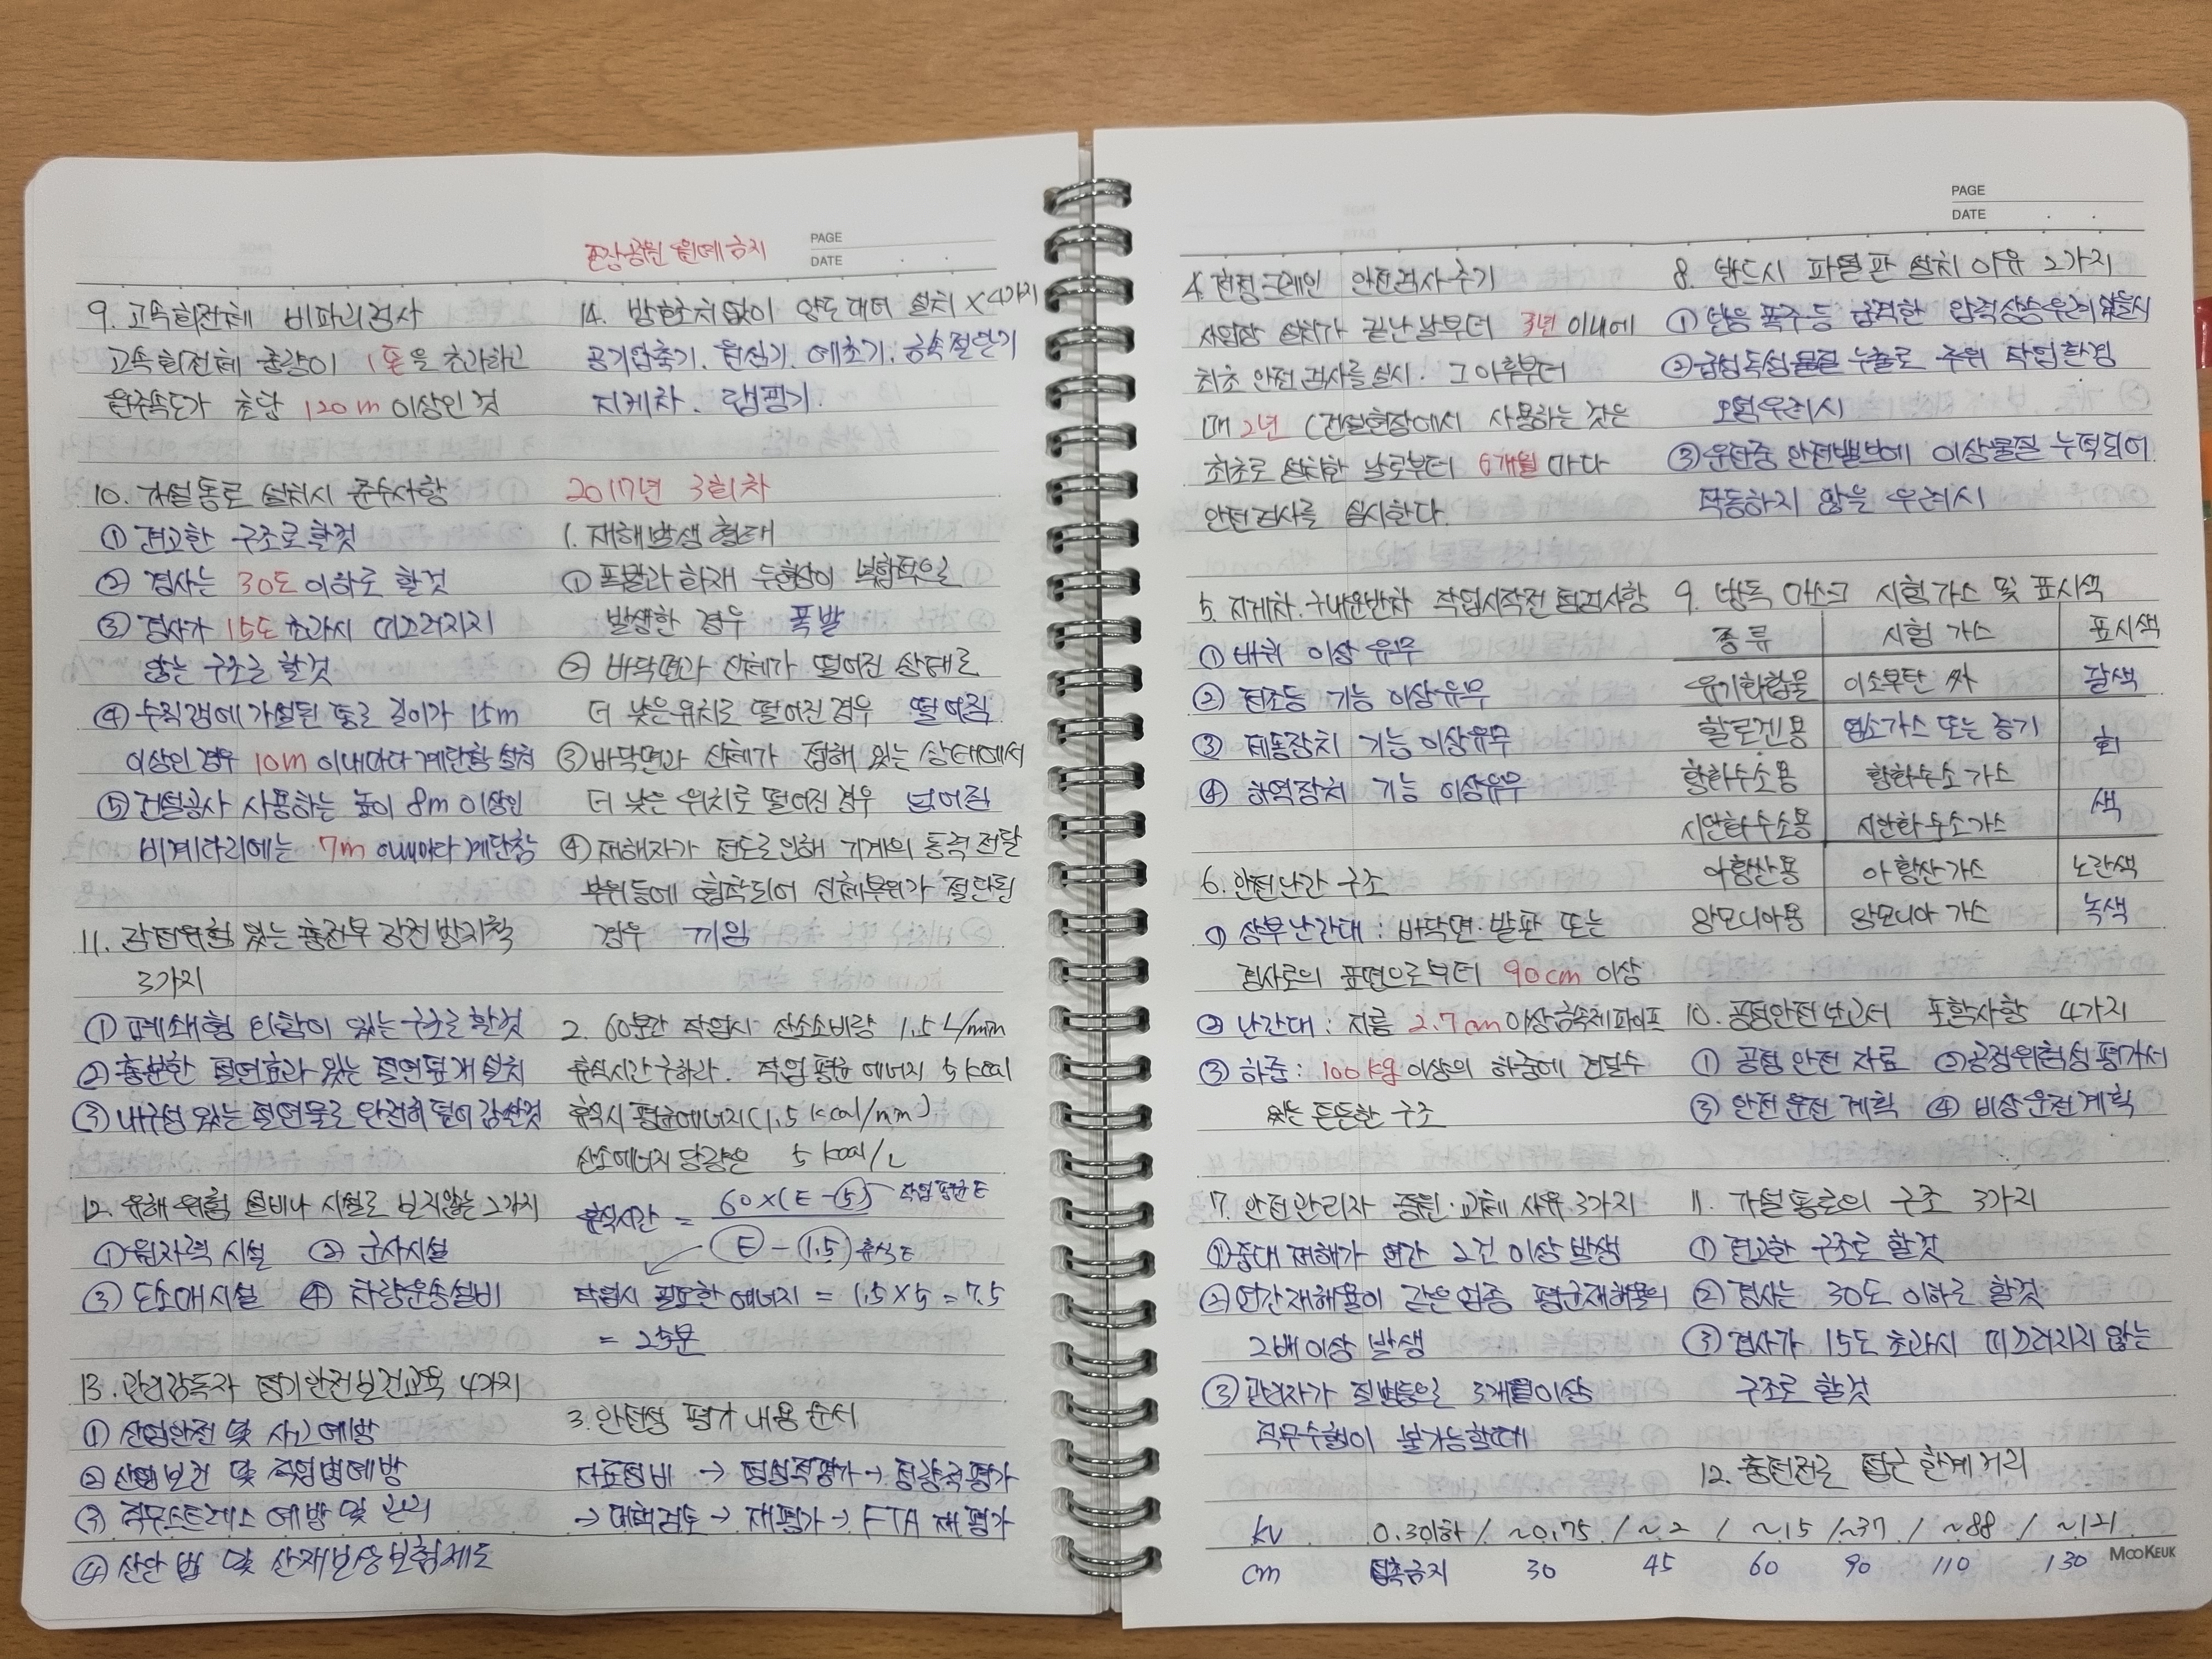 PAGE
DATE
9. 고속회전체 비파괴검사
고속회전체 중량이 1톤을 초과하고
원주속도가 초당 120m 이상인 것
10. 가설통로 설치시 준수사항
① 견고한 구조로 할것
② 경사는 30도 이하로 할것
③ 경사가 15도 초과시 미끄러지지
않는 구조로 할것
④ 수직갱에 가설된 통로 길이가 15m
이상인 경우 10m 이내마다 계단참 설치
⑤ 건설공사 사용하는 높이 8m 이상인
비계다리에는 7m 이내마다 계단참
11. 감전위험 있는 충전부 감전방지책
3가지
① 폐쇄형 외함이 있는 구조로 할것
② 충분한 절연효과 있는 절연덮개 설치
③ 내구성 있는 절연물로 완전히 덮어 감쌀것
12. 유해 위험 설비나 시설로 보지않는 2가지
① 원자력 시설 ② 군사시설
③ 도소매시설 ④ 차량운송설비
13. 관리감독자 정기안전보건교육 4가지
① 산업안전 및 사고 예방
② 산업보건 및 직업병예방
③ 직무스트레스 예방 및 관리
④ 산안법 및 산재보상보험제도
14. 방호조치없이 양도 대여 설치 X 4가지
공기압축기. 원심기. 예초기. 금속절단기
지게차. 랩핑기.
2017년 3회차
1. 재해발생 형태
① 폭발과 화재 두현상이 복합적으로
발생한 경우 폭발
② 바닥면과 신체가 떨어진 상태로
더 낮은위치로 떨어진경우 떨어짐
③ 바닥면과 신체가 접해 있는 상태에서
더 낮은 위치로 떨어진 경우 넘어짐
④ 재해자가 전도로인해 기계의 동력 전달
부위등에 협착되어 신체부위가 절단된
경우 끼임
2. 60분간 작업시 산소소비량 1.5 L/min
휴식시간 구하라. 작업 평균 에너지 5 kcal
휴식시 평균에너지(1.5 kcal/min)
산소에너지 당량은 5 kcal/L
휴식시간 = 60×(E-(5)) 작업 평균 E
(E) - (1.5) 휴식 E
작업시 필요한 에너지 = 1.5 × 5 = 7.5
= 25분
3. 안전성 평가 내용 순서
자료정비 → 정성적평가 → 정량적평가
→ 대책검토 → 재평가 → FTA 재평가
PAGE
DATE
4. 천정크레인 안전검사 주기
사업장 설치가 끝난날부터 3년 이내에
최초 안전검사를 실시. 그 이후부터
매 2년 (건설현장에서 사용하는 것은
최초로 설치한 날로부터 6개월 마다
안전검사를 실시한다.
5. 지게차. 구내운반차 작업시작전 점검사항
① 바퀴 이상 유무
② 전조등 기능 이상유무
③ 제동장치 기능 이상유무
④ 하역장치 기능 이상유무
6. 안전난간 구조
① 상부난간대 : 바닥면·발판 또는
경사로의 표면으로부터 90cm 이상
② 난간대 : 지름 2.7cm 이상 금속제파이프
③ 하중 : 100kg 이상의 하중에 견딜수
있는 튼튼한 구조
7. 안전관리자 증원·교체 사유 3가지
① 중대 재해가 연간 2건 이상 발생
② 연간재해율이 같은 업종 평균재해율의
2배 이상 발생
③ 관리자가 질병등으로 3개월이상
직무수행이 불가능할때
8. 반드시 파열판 설치 이유 2가지
① 반응 폭주 등 급격한 압력상승우려 있을시
② 급성독성물질 누출로 주위 작업환경
오염우려시
③ 운전중 안전밸브에 이상물질 누적되어
작동하지 않을 우려시
9. 방독 마스크 시험가스 및 표시색
종류 시험 가스 표시색
유기화합물 이소부탄 갈색
할로겐용 염소가스 또는 증기 회
황화수소용 황화수소 가스
시안화수소용 시안화수소가스 색
아황산용 아황산가스 노란색
암모니아용 암모니아 가스 녹색
10. 공정안전보고서 포함사항 4가지
① 공정 안전 자료 ② 공정위험성 평가서
③ 안전운전 계획 ④ 비상운전계획
11. 가설통로의 구조 3가지
① 견고한 구조로 할것
② 경사는 30도 이하로 할것
③ 경사가 15도 초과시 미끄러지지 않는
구조로 할것
12. 충전전로 접근 한계거리
kv 0.3이하 / ~0.75 / ~2 / ~15 / ~37 / ~88 / ~121
cm 접촉금지 30 45 60 90 110 130
MOOKEUK